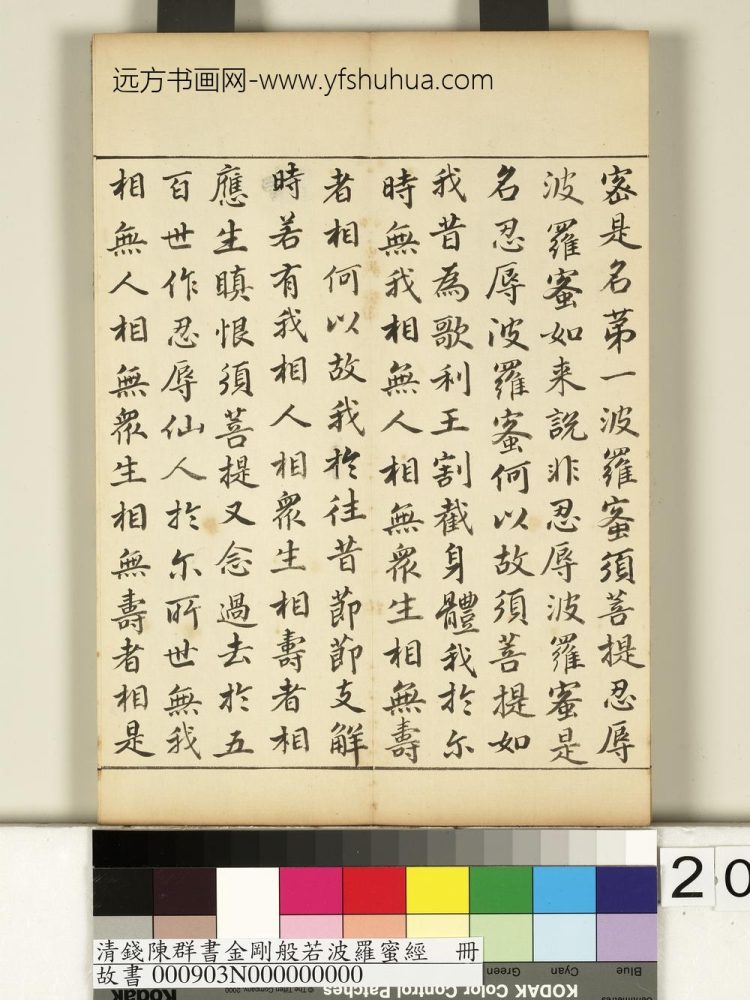 远方书画网-www.yfshuhua.com
密是名苐一波羅蜜須菩提忍辱
波羅蜜如来說非忍辱波羅蜜是
名忍辱波羅蜜何以故須菩提如
我昔為歌利王割截身體我於尔
時無我相無人相無衆生相無壽
者相何以故我於往昔節節支解
時若有我相人相衆生相壽者相
應生瞋恨須菩提又念過去於五
百世作忍辱仙人於尓所世無我
相無人相無衆生相無壽者相是
20
Blue
Cyan
Green
KODAK Color Control Patches
© The Tiffen Company, 2000
清錢陳群書金剛般若波羅蜜經 冊
故書 000903N000000000